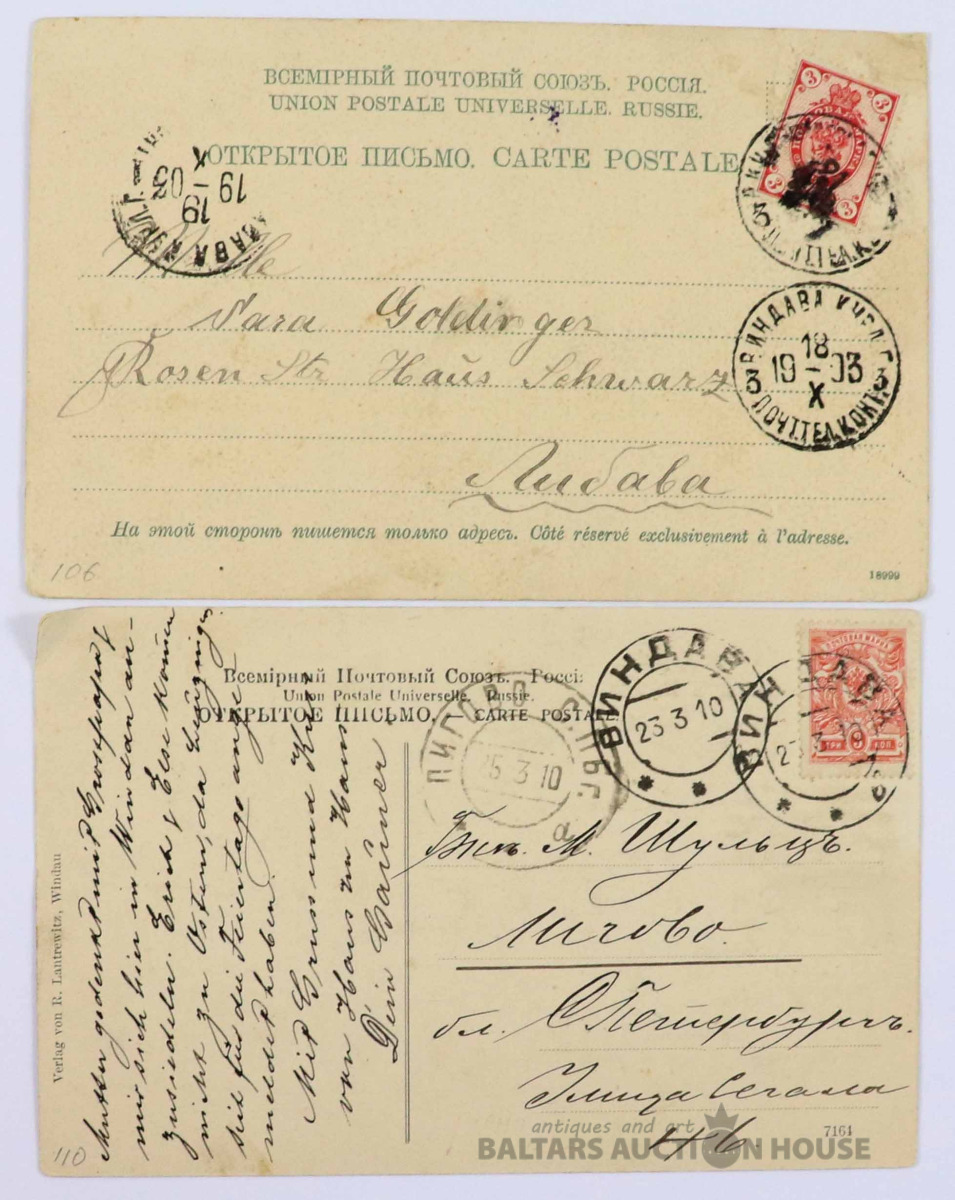 ВСЕМІРНЫЙ ПОЧТОВЫЙ СОЮЗЪ. РОССІЯ.
UNION POSTALE UNIVERSELLE. RUSSIE.
ОТКРЫТОЕ ПИСЬМО. CARTE POSTALE
3
3
3
19
X
19 03
ВИНДАВА КУРЛ. Г.
18
19 – 03
X
3 3
ПОЧТ ТЕЛ. КОНТ.
Sara Goldinger
Rosen Str Haus Schwarz
Либава
На этой сторонѣ пишется только адресъ. Côté réservé exclusivement à l'adresse.
106
18999
Всемірный Почтовый Союзъ. Россі
Union Postale Universelle. Russie.
ОТКРЫТОЕ ПИСЬМО. — CARTE POSTALE.
ВИНДАВА
23 3 10
ВИНДАВА
ЛИГОВО С.ПБГ.
25 3 10
а
ПОЧТОВАЯ МАРКА
ТРИ 3 КОП
Mutter gedenkt mit Grosspapa
sich hier in Windau an-
zusiedeln. Erich & Else kommen
nicht zu Ostern, da
sich für die Feiertage ange
meldet haben.
Mit Gruss und Kuss
von Haus zu Haus
Dein
М. Шульцъ.
Лигово.
бл. С Петербургъ.
Улица Сегала
46.
Verlag von R. Lantrewitz, Windau
7161
110
antiques and art
BALTARS AUCTION HOUSE